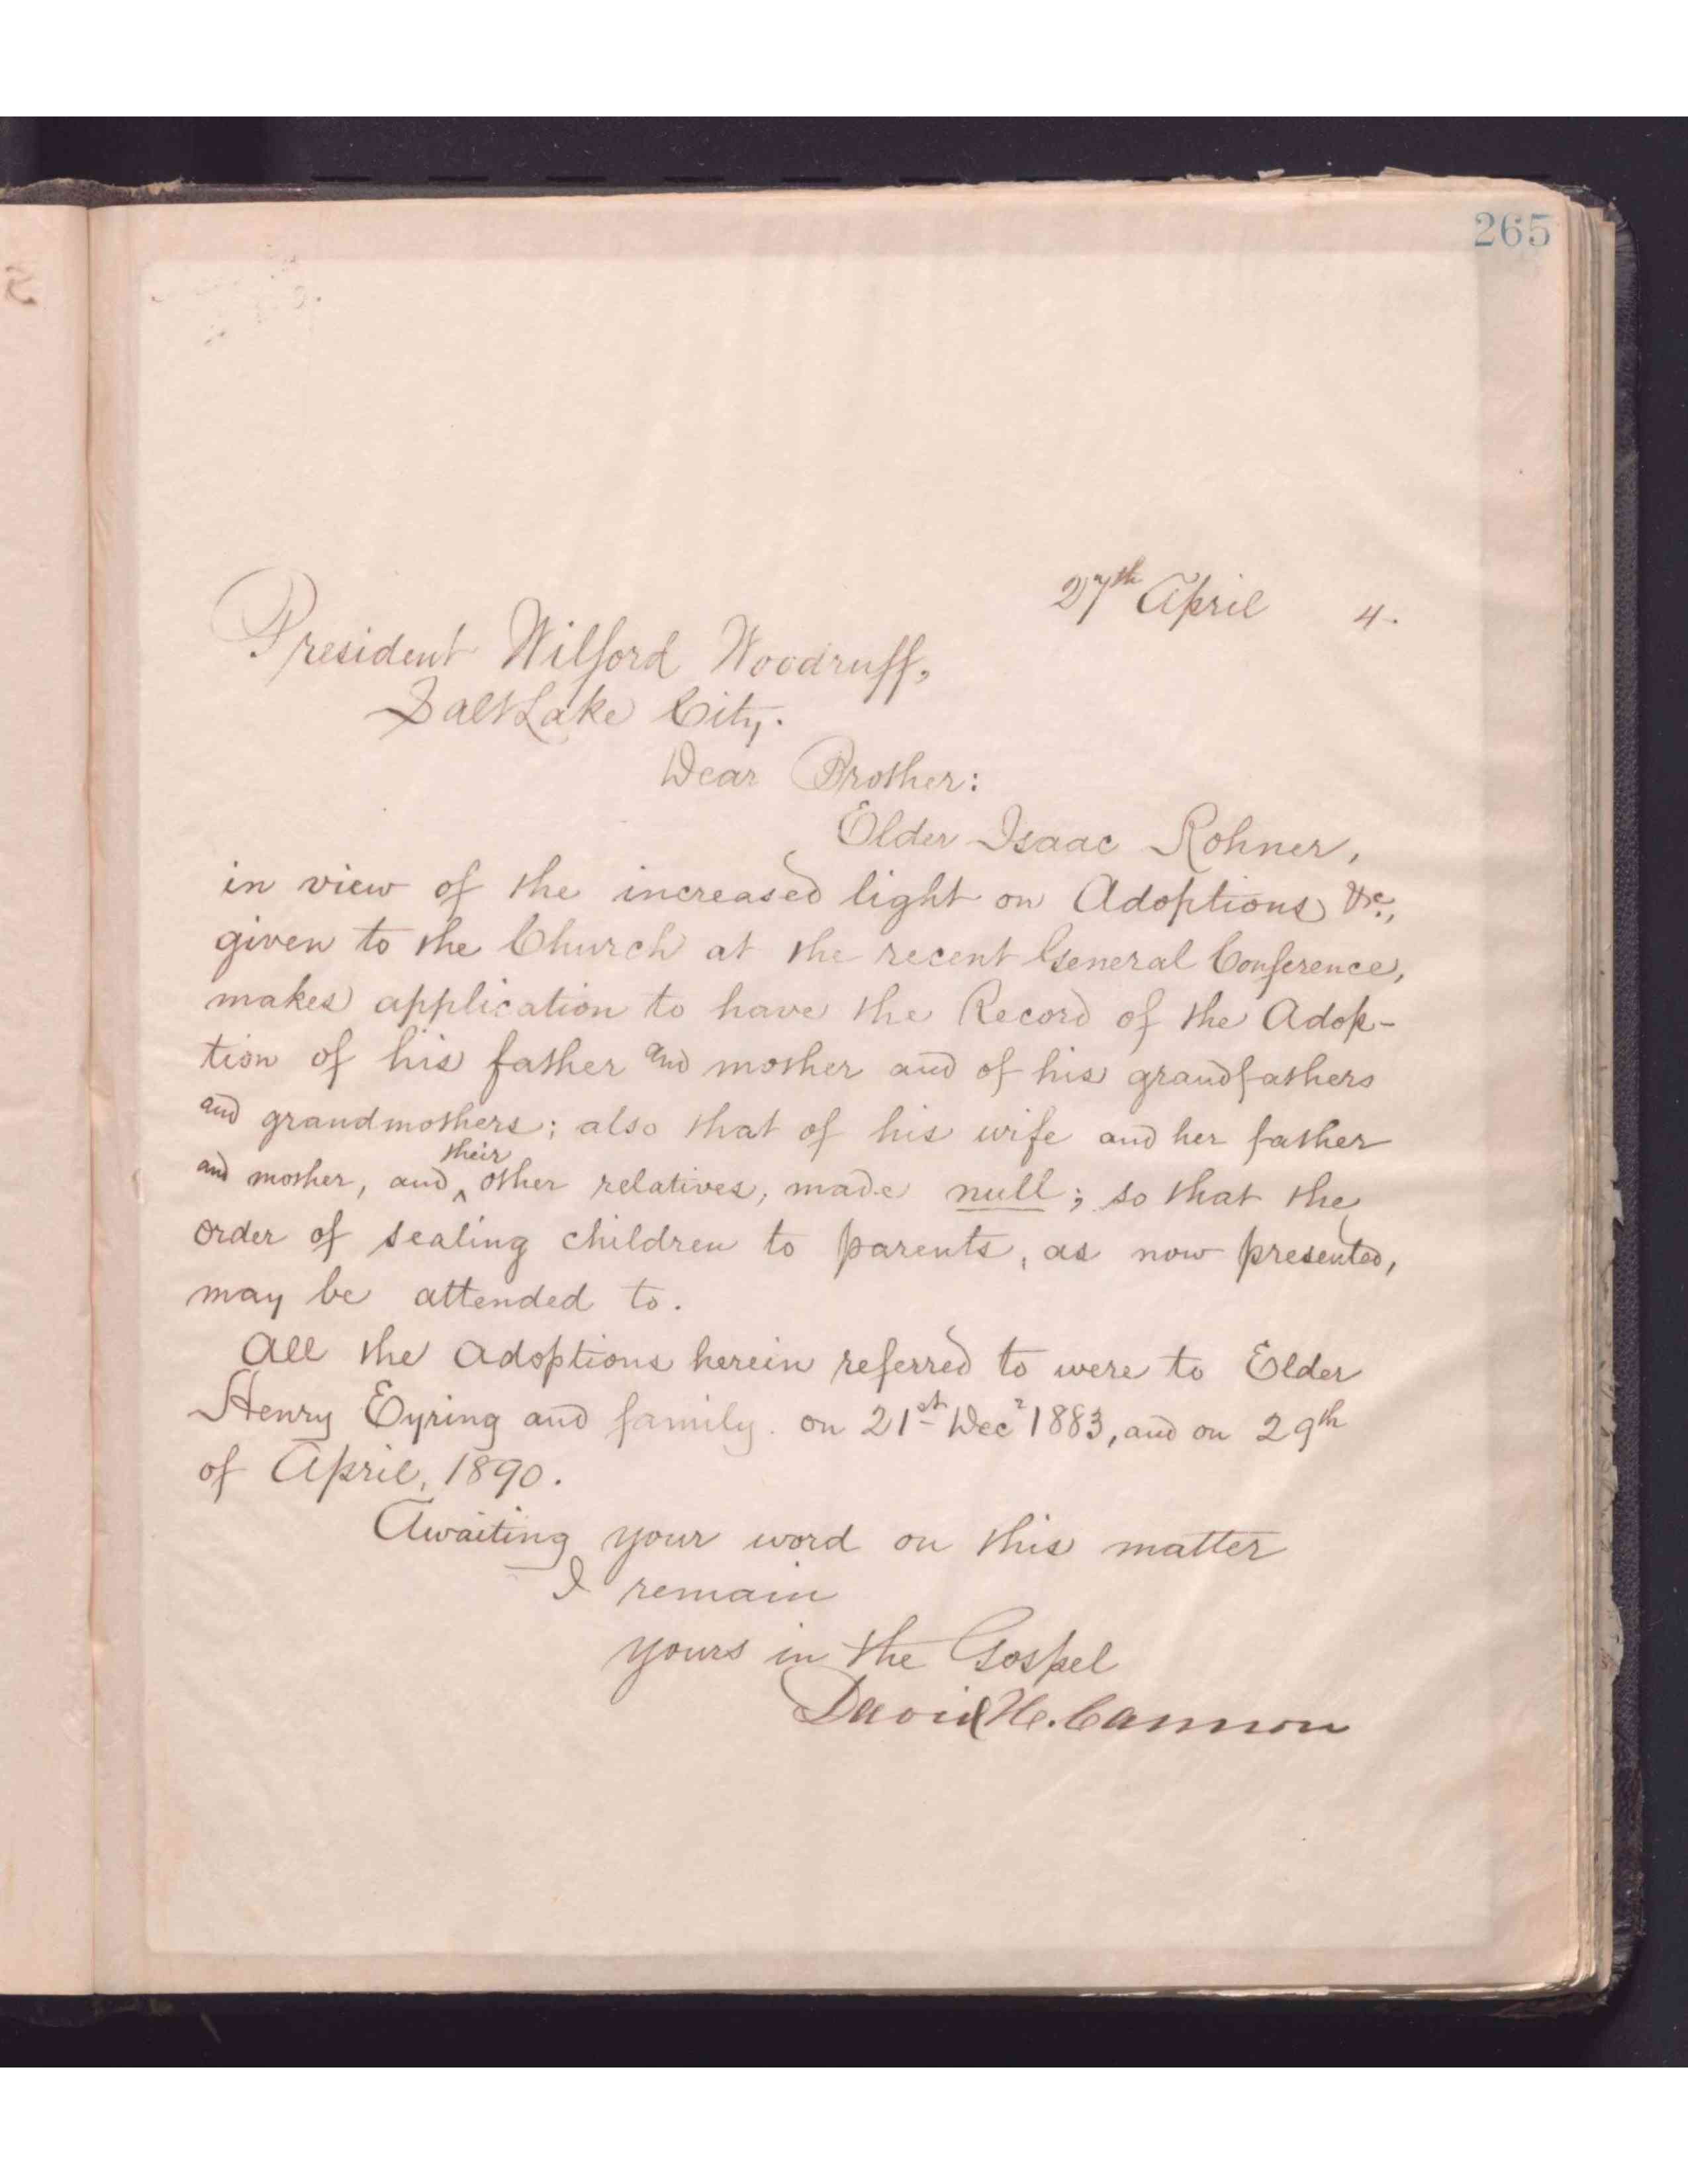 265
27th April 4.
President Wilford Woodruff,
Salt Lake City.
Dear Brother:
Elder Isaac Rohner,
in view of the increased light on Adoptions &c.,
given to the Church at the recent General Conference,
makes application to have the Record of the Adop-
tion of his father and mother and of his grandfathers
and grandmothers; also that of his wife and her father
their
and mother, and ‸ other relatives, made null; so that the
order of sealing children to parents, as now presented,
may be attended to.
All the adoptions herein referred to were to Elder
Henry Eyring and family. on 21st Decr 1883, and on 29th
of April, 1890.
Awaiting your word on this matter
I remain
yours in the Gospel
David H. Cannon